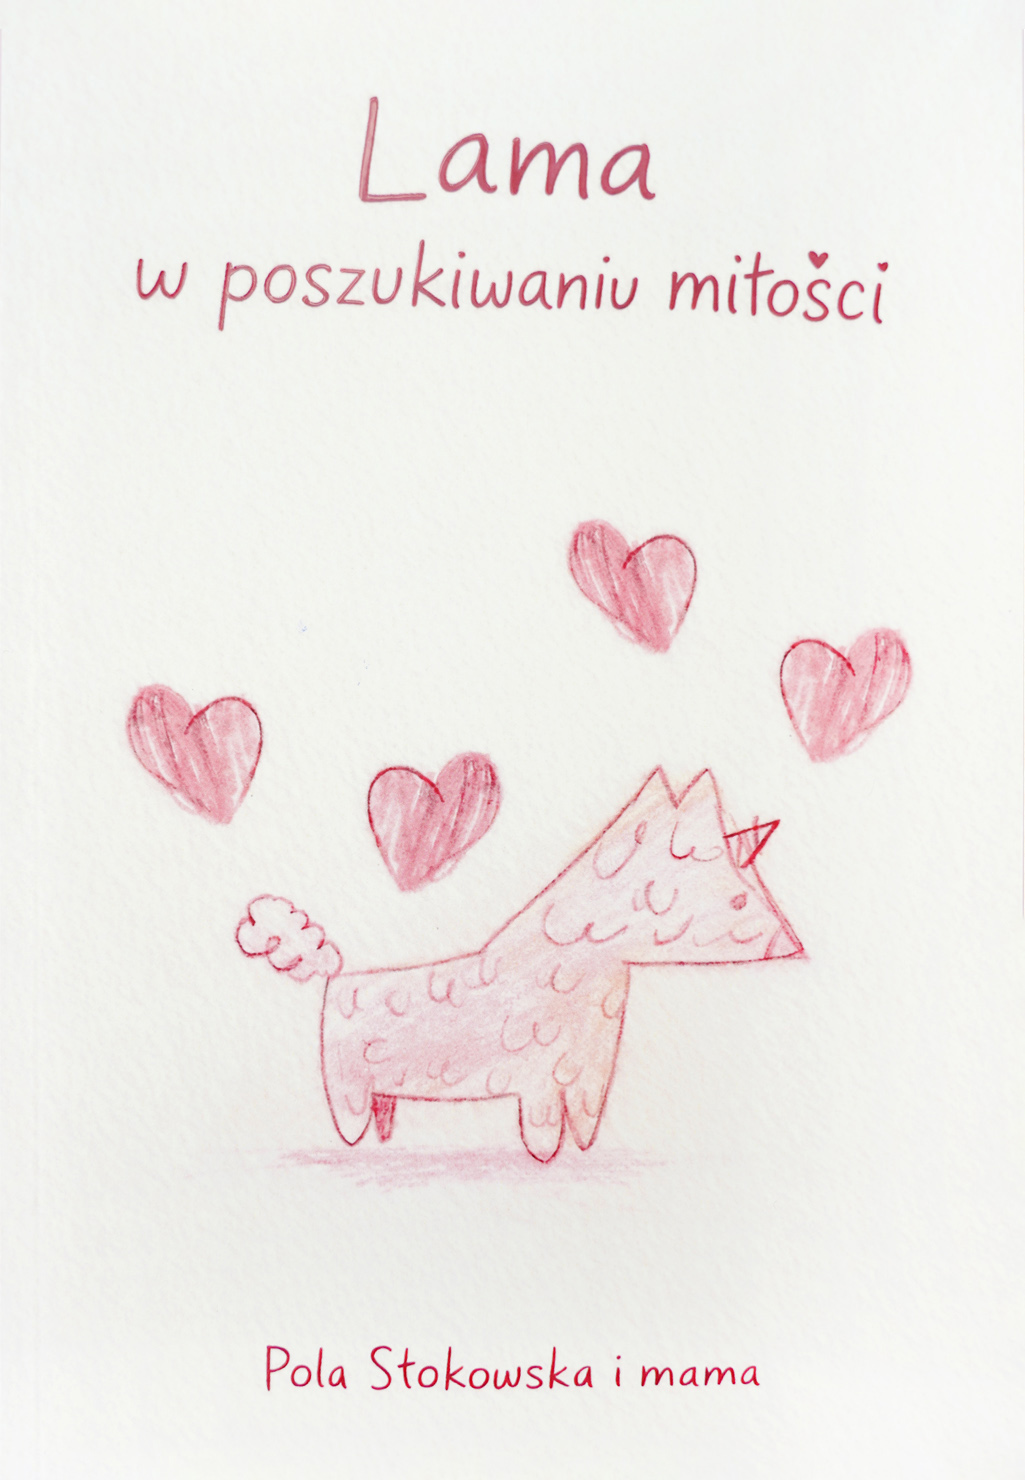 Lama
w poszukiwaniu miłości
Pola Stokowska i mama